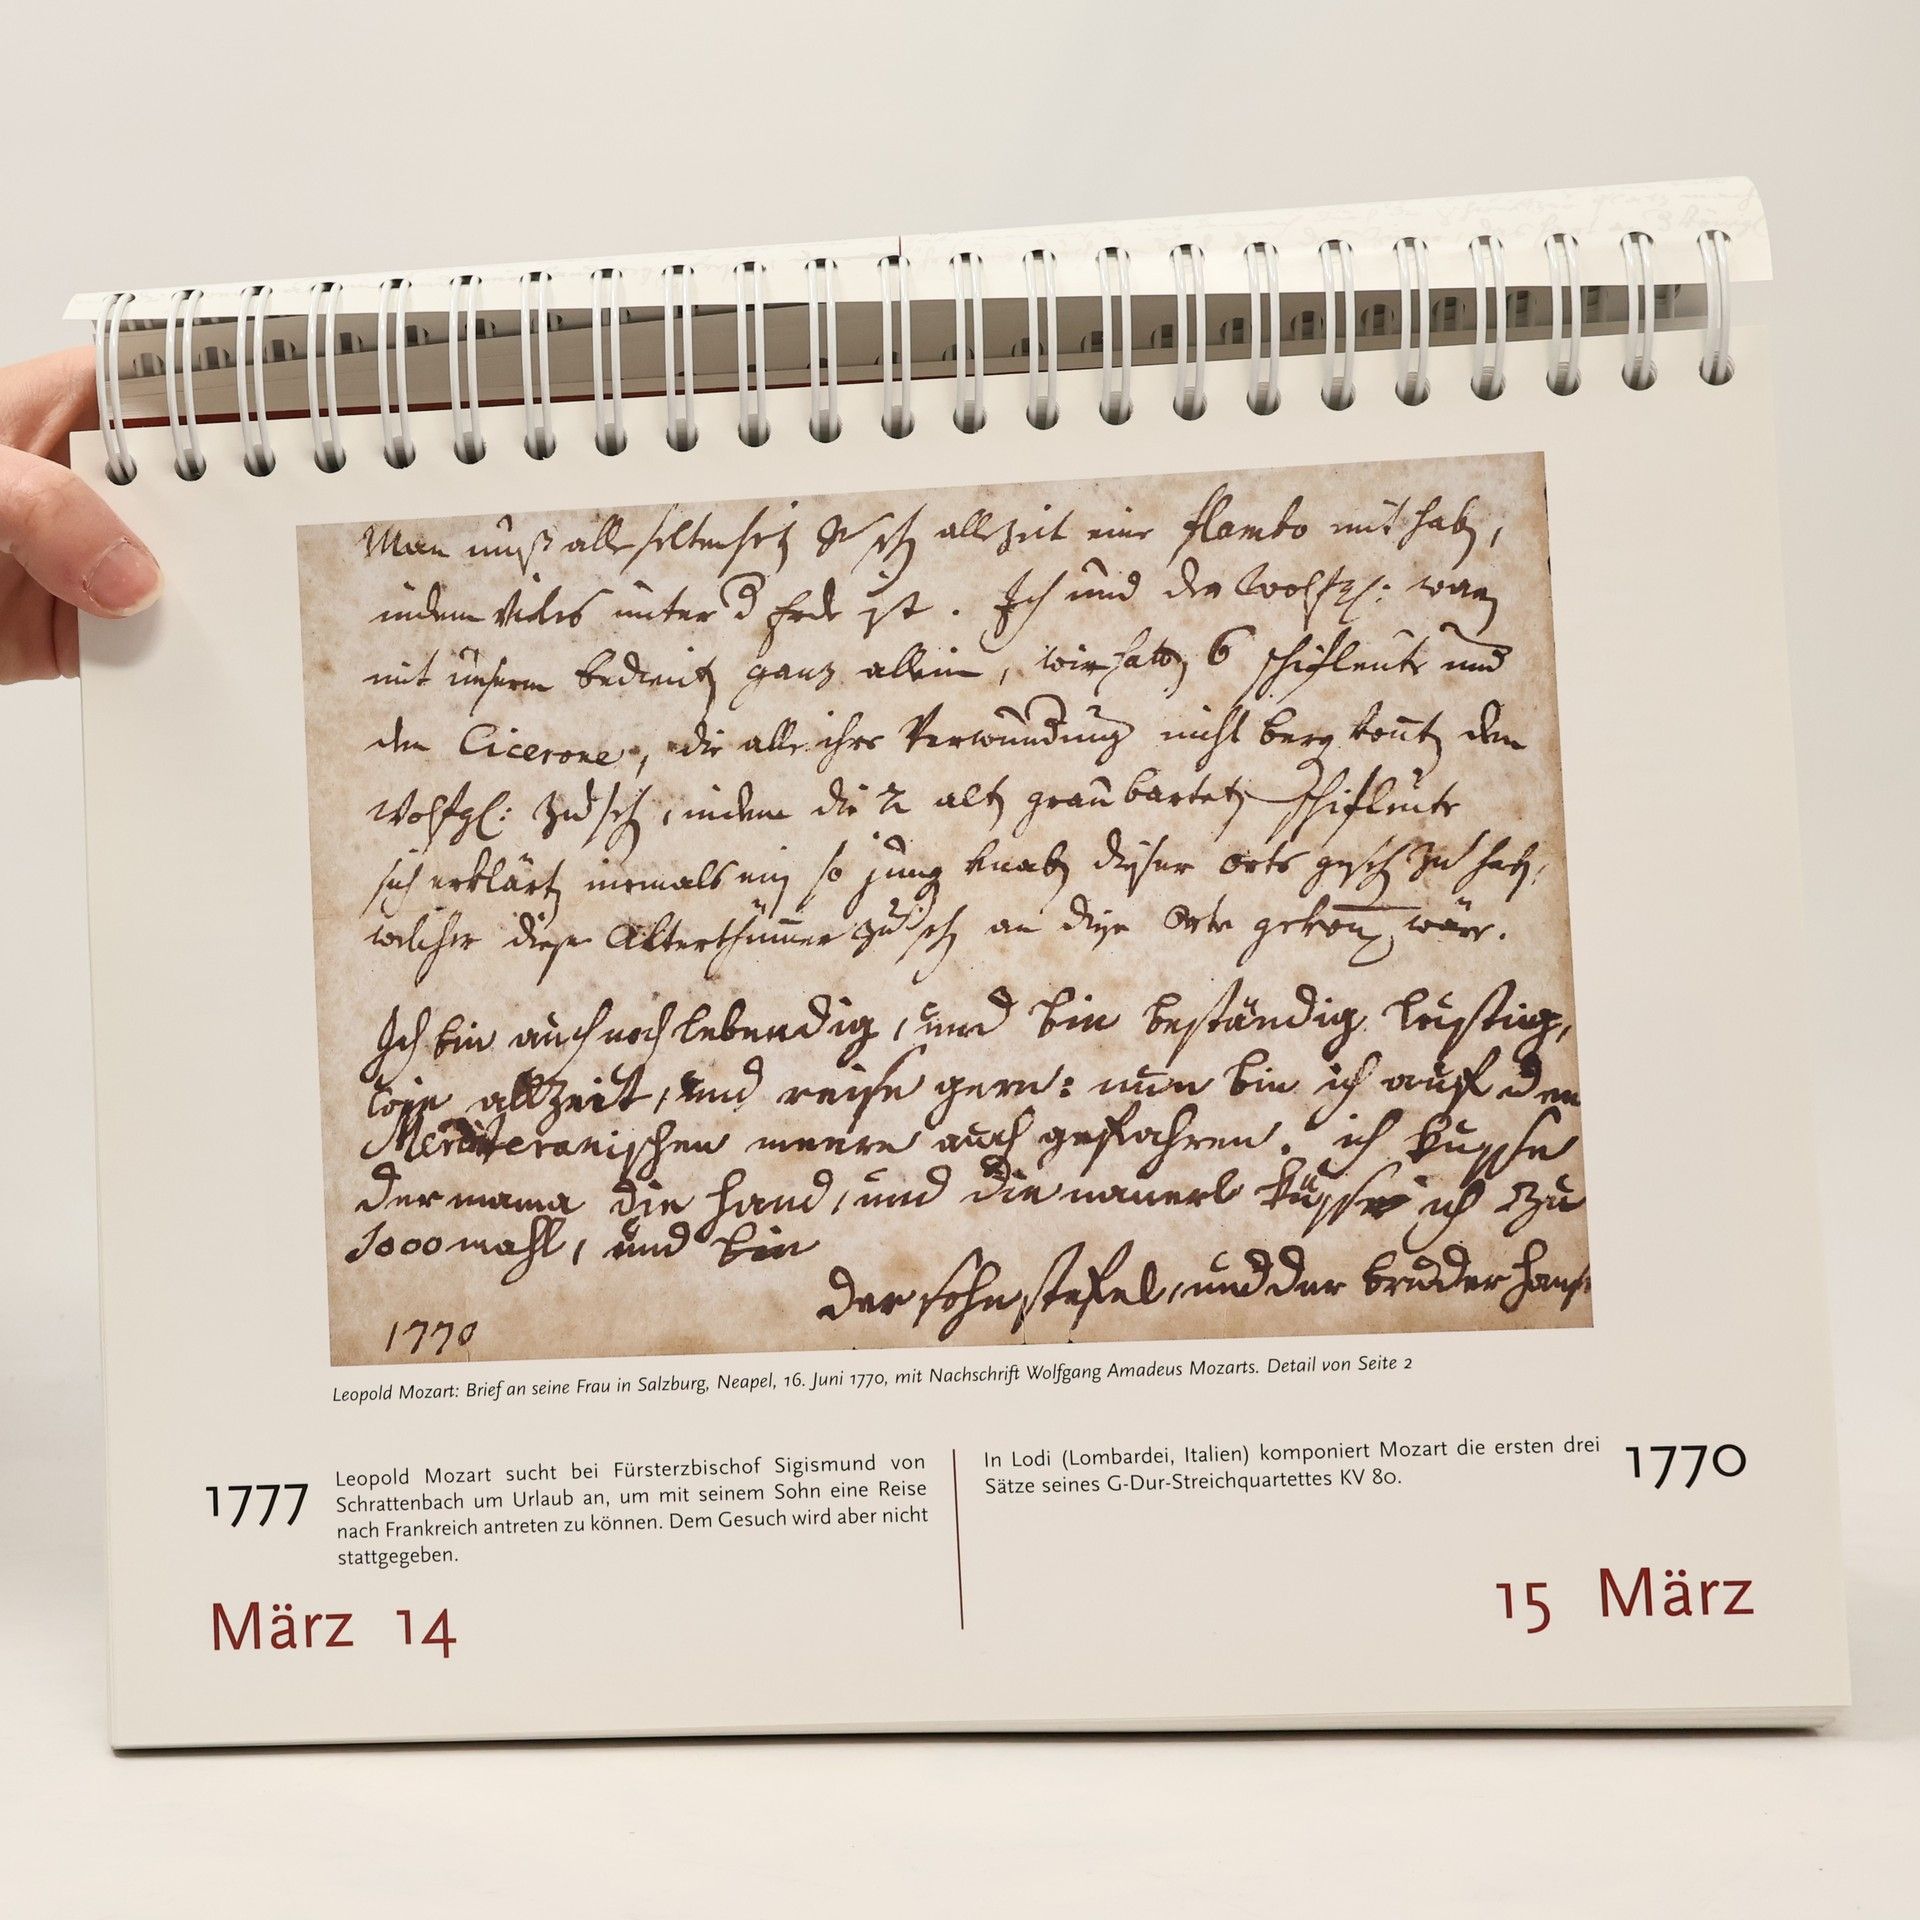 Man muß alle seltenheit zu sehen allezeit eine flambo mit haben,
indem vieles unter d Erde ist. Ich und der Wolfg: waren
mit unserm bedienten ganz allein, wir hatten 6 schifleute und
den Cicerone, die alle ihre Verwunderung nicht bergen konnten den
Wolfgl: zu sehen, indem die 2 alten graubarteten schifleute
sich erklärten niemals einen so jungen knaben dieser orte gesehen zu haben,
welcher diese Alterthümmer zu sehen an diese Orte gekommen wäre.
Ich bin auch noch lebendig, und bin beständig lustig,
wie allzeit, und reise gern: nun bin ich auf den
Mediteranischen meere auch gefahren. ich kusse
der mama die hand, und die nanerl küsse ich zu
1000 mahl, und bin
der sohn stefel, und der bruder hansl
1770
Leopold Mozart: Brief an seine Frau in Salzburg, Neapel, 16. Juni 1770, mit Nachschrift Wolfgang Amadeus Mozarts. Detail von Seite 2
1777
Leopold Mozart sucht bei Fürsterzbischof Sigismund von
Schrattenbach um Urlaub an, um mit seinem Sohn eine Reise
nach Frankreich antreten zu können. Dem Gesuch wird aber nicht
stattgegeben.
März 14
In Lodi (Lombardei, Italien) komponiert Mozart die ersten drei
Sätze seines G-Dur-Streichquartettes KV 80.
1770
15 März